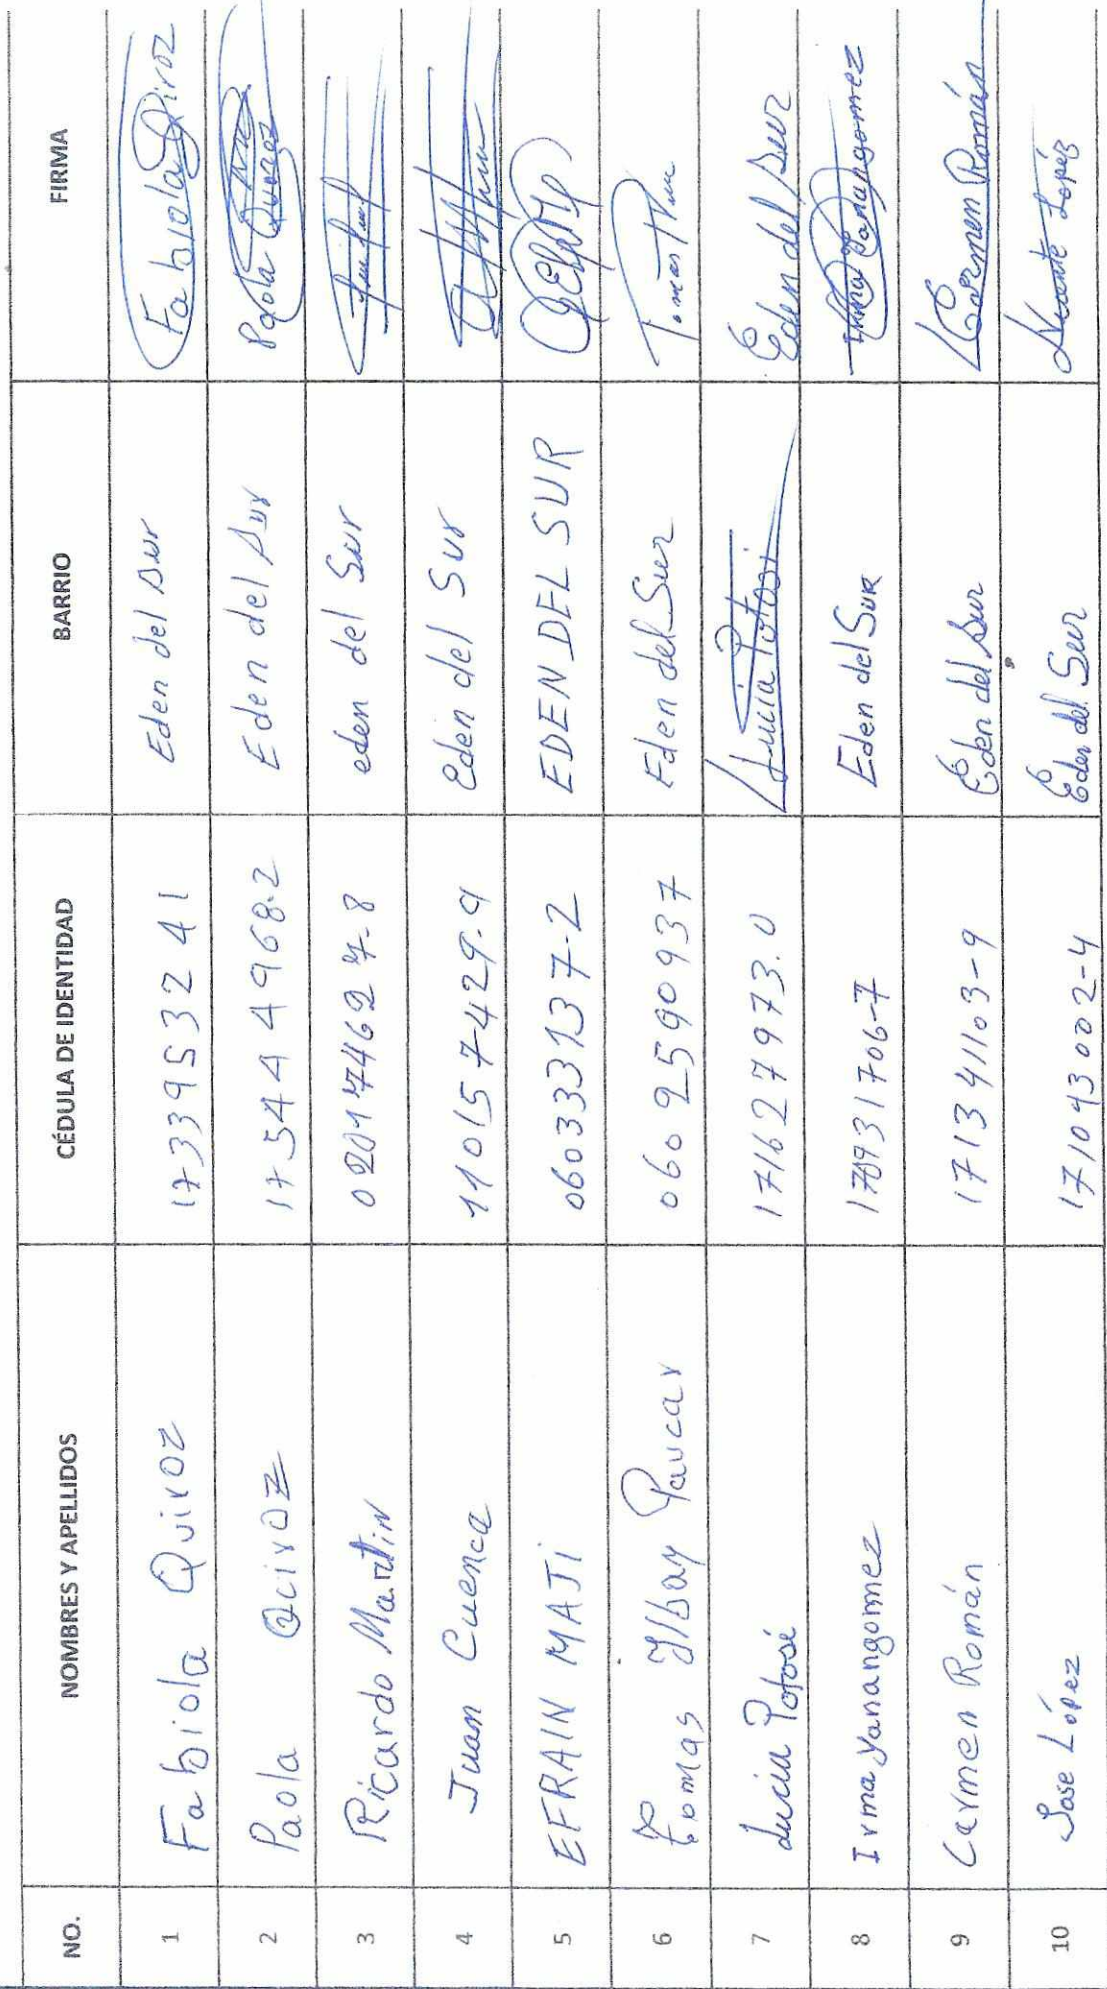 NO. NOMBRES Y APELLIDOS CÉDULA DE IDENTIDAD BARRIO FIRMA
1 Fabiola Quiroz 1733953241 Eden del sur Fabiola Qiroz
2 Paola Qciroz 175444968.2 Eden del sur Paola Quiroz
3 Ricardo Martin 020174627-8 eden del Sur
4 Juan Cuenca 110157429-9 Eden del Sur
5 EFRAIN MAJI 060333137-2 EDEN DEL SUR
6 Tomas Ilbay Paucar 0602590937 Eden del Sur Tomas
7 Lucia Potosí 171627973.0 Lucia Potosi Eden del sur
8 Irma Yanangomez 170931706-7 Eden del SUR Irma Yanangomez
9 Carmen Román 171341103-9 Eden del Sur Carmen Román
10 Jose López 171043002-4 Eden del Sur López